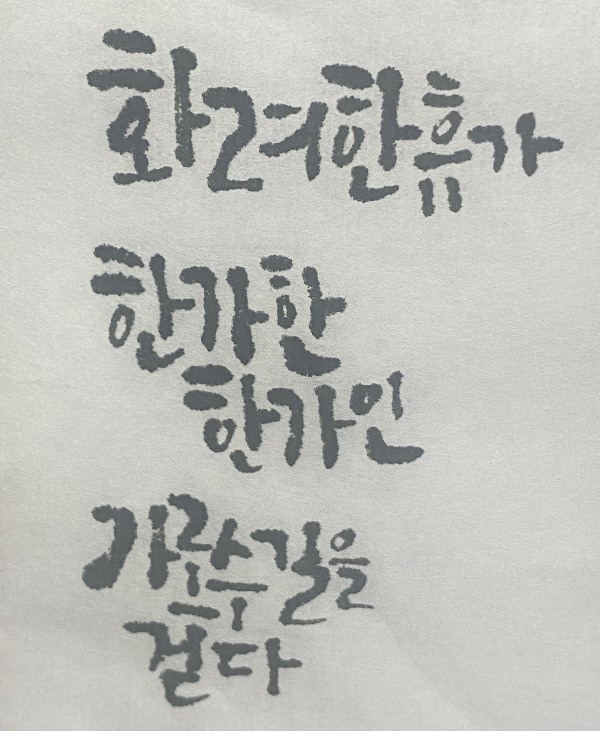 화려한휴가
한가한
한가인
가로수길을
걷다